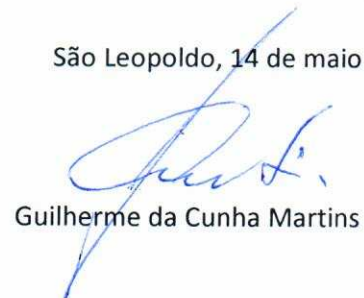 São Leopoldo, 14 de maio
Guilherme da Cunha Martins